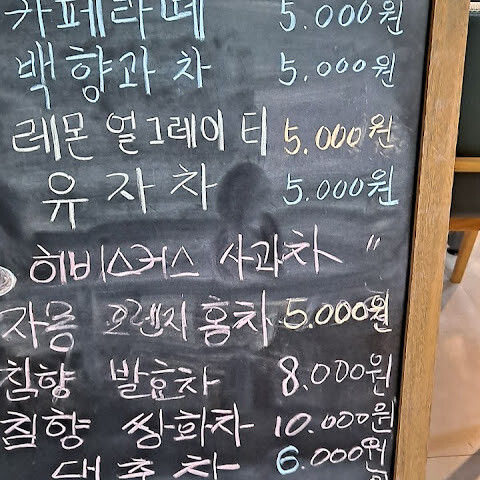 카페라떼 5.000원
백향과 차 5.000원
레몬 얼그레이 티 5.000원
유자차 5.000원
히비스커스 사과차 〃
자몽 오렌지 홍차 5.000원
침향 발효차 8.000원
침향 쌍화차 10.000원
대추차 6.000원